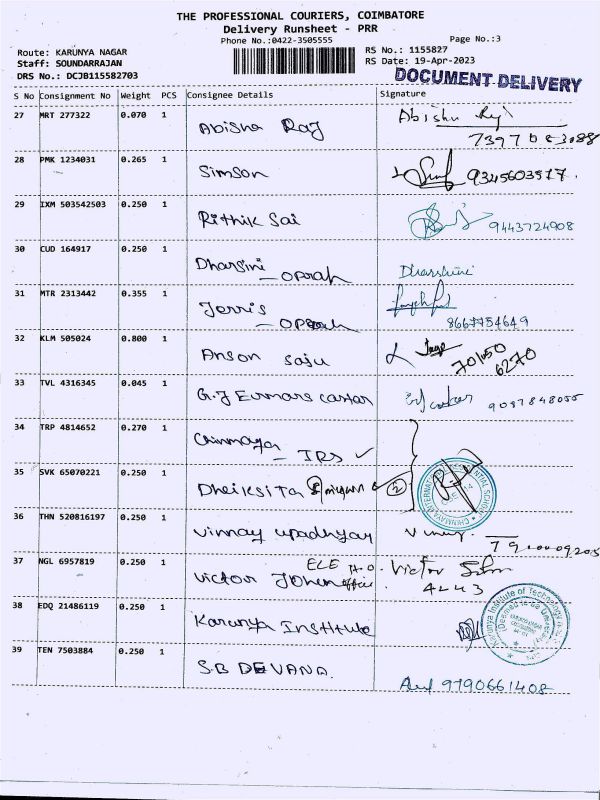 THE PROFESSIONAL COURIERS, COIMBATORE
Delivery Runsheet - PRR
Phone No.:0422-3505555
Page No.:3
Route: KARUNYA NAGAR
RS No.: 1155827
Staff: SOUNDARRAJAN
RS Date: 19-Apr-2023
DRS No.: DCJB115582703
DOCUMENT DELIVERY
S No Consignment No Weight PCS Consignee Details Signature
27 MRT 277322 0.070 1 Abisha Raj Abisha Raj
28 PMK 1234031 0.265 1 Simson 9345603577.
29 IXM 503542503 0.250 1 Rithik Sai 9443724908
30 CUD 164917 0.250 1 Dharsini - oprah Dharshini
31 MTR 2313442 0.355 1 Jerris - oprah
8667754649
32 KLM 505024 0.800 1 Anson Saju
701050
6270
33 TVL 4316345 0.045 1 G.J
34 TRP 4814652 0.270 1 Chinmaya - IRS ✓
35 SVK 65070221 0.250 1 Dheiksita 2
36 THN 520816197 0.250 1 Vinnay upadhyay
37 NGL 6957819 0.250 1 Victor ELE H.O. office Victor
4243
38 EDQ 21486119 0.250 1 Karunya Institute
Karunya Institute of Technology
(Deemed to be University)
39 TEN 7503884 0.250 1 S.B DEVANA.
9790661408